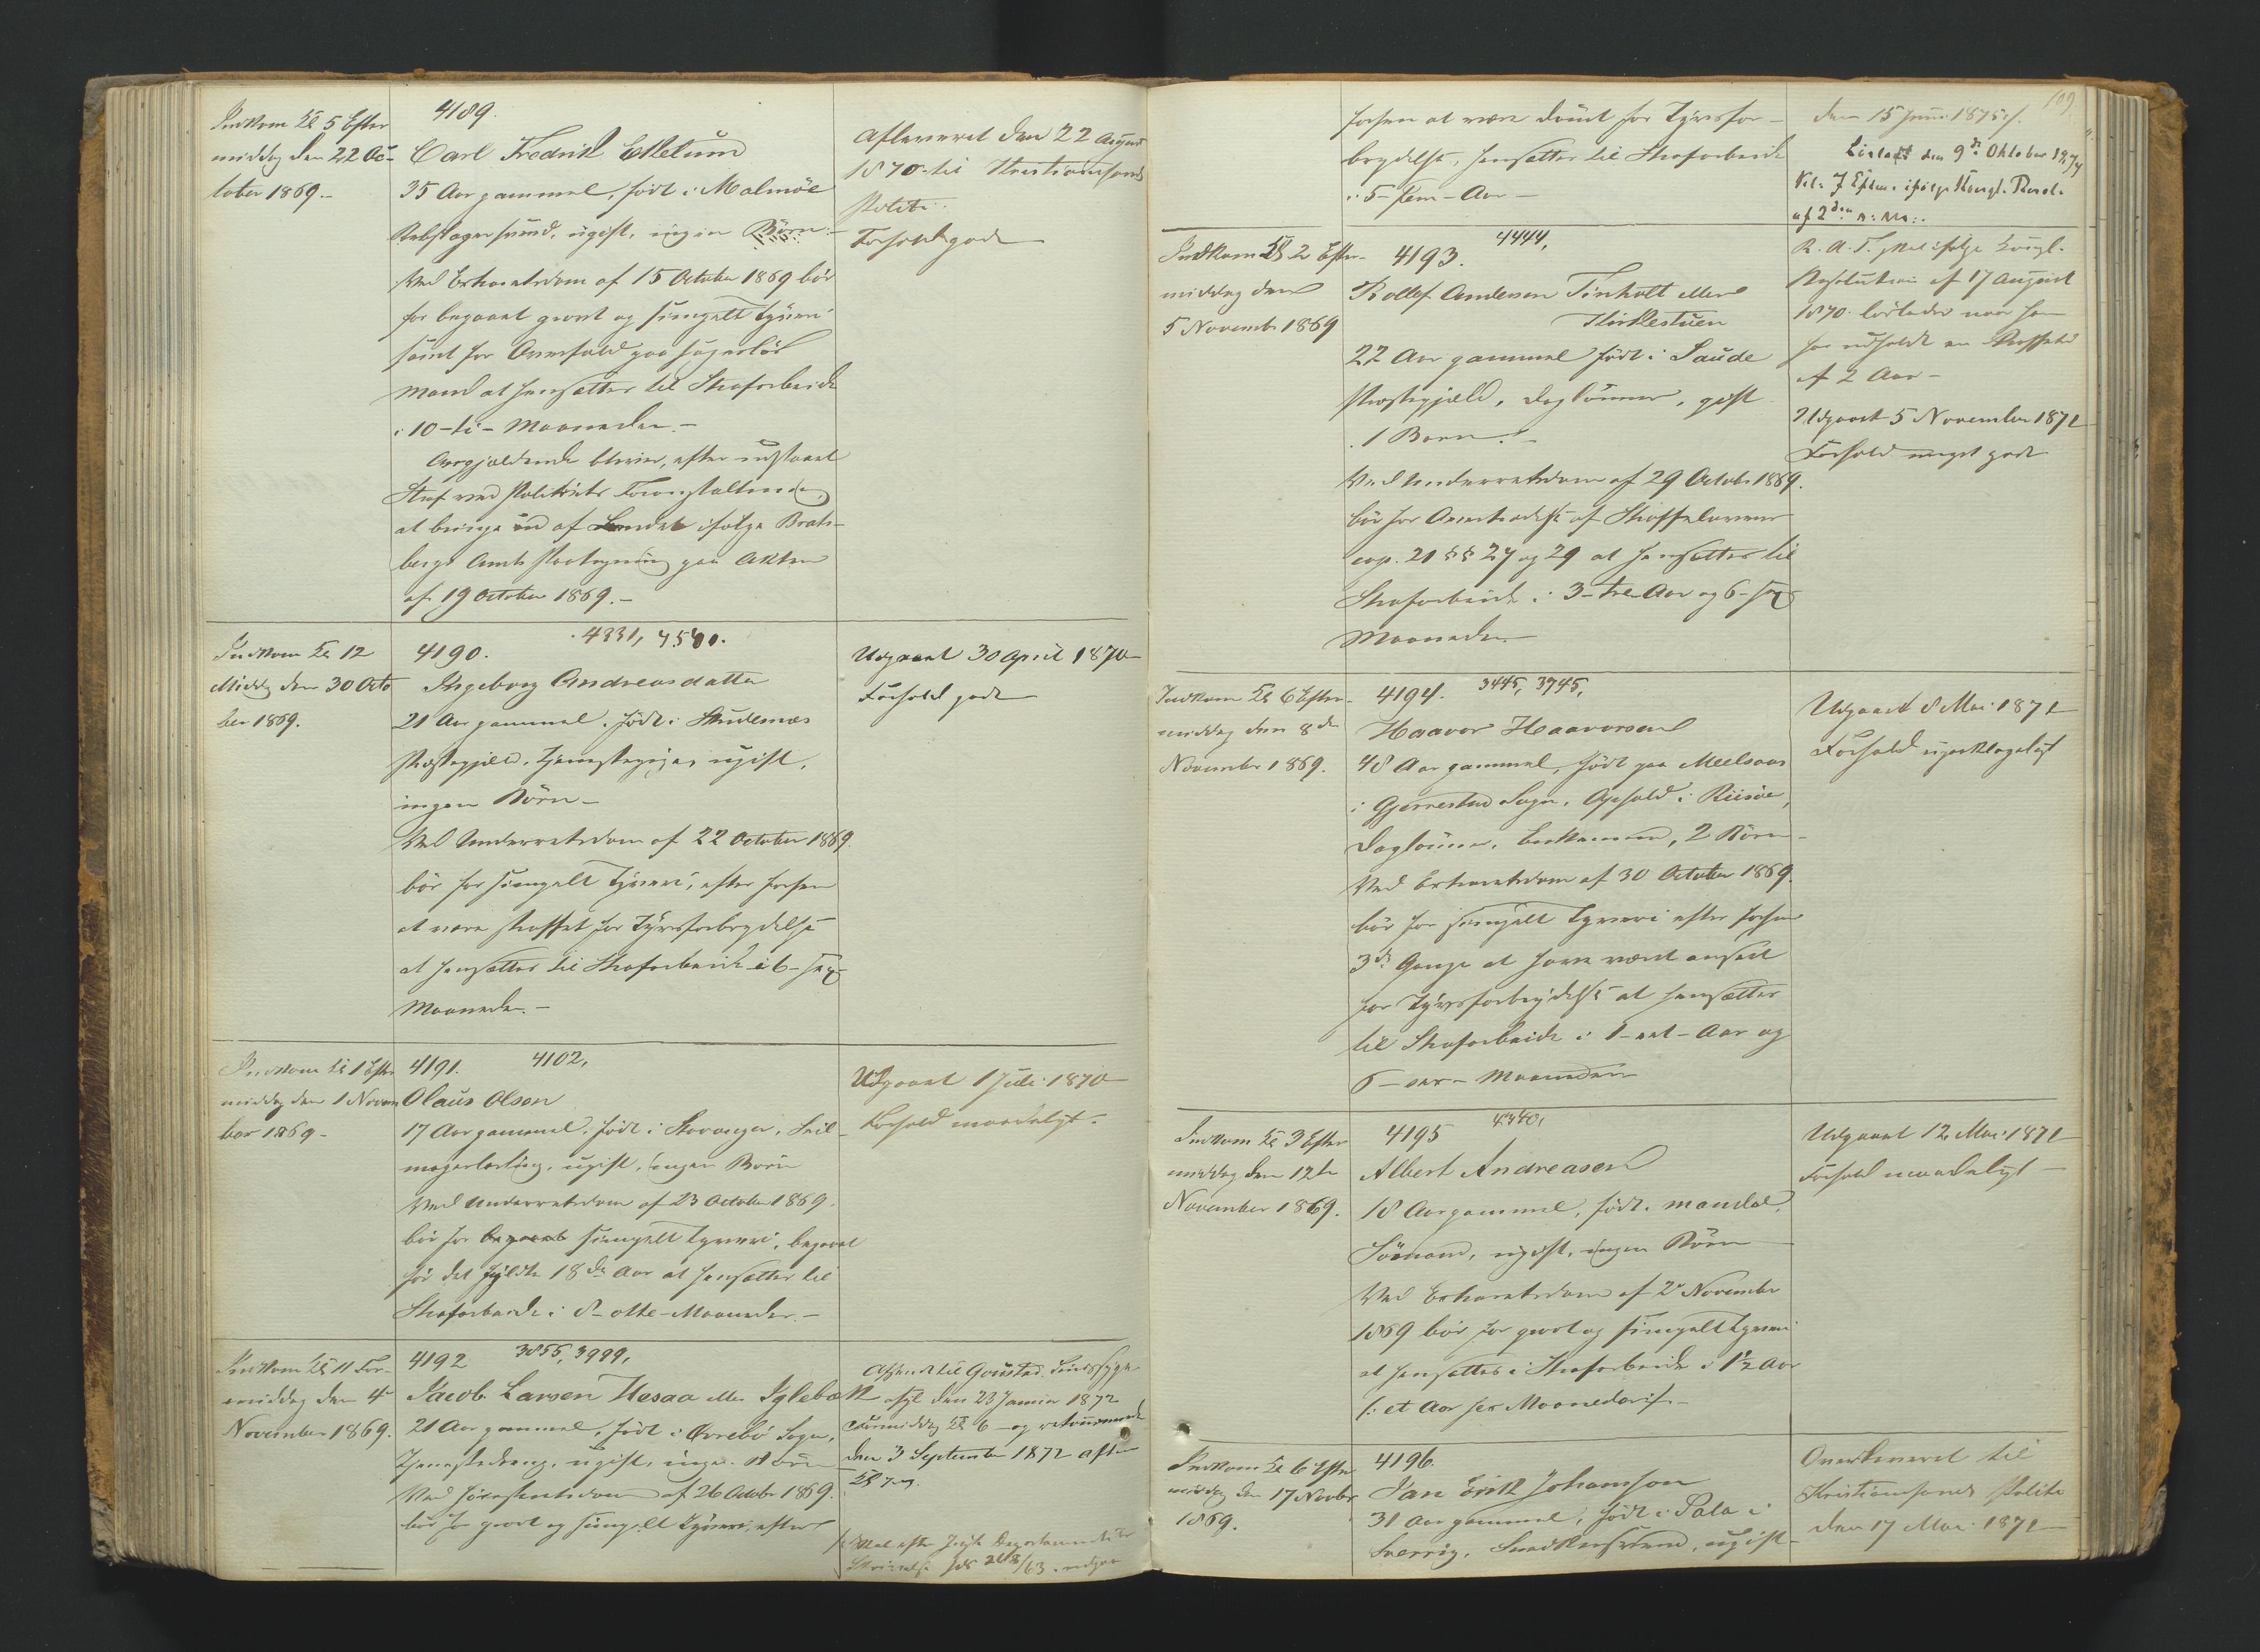 Indkom Kl 5 Efter
middag den 22 Oc-
tober 1869.-
4189.
Carl Fredrik Ekelund
35 Aar gammel, født i Malmöe
ugift, ingen Børn.-
Ved Extraretsdom af 15 October 1869 bør
for begaaet grovt og simpelt Tyveri
samt for Overfald paa
Mand at hensættes til Strafarbeide
i 10-ti-Maaneder.-
blever, efter udstaaet
Straf ved Politiets Foranstaltning
at bringe ud af Landet ifølge Brats-
bergs Amts Paategning paa Akten
af 19 October 1869.-
Afleveret den 22 August
1870 til Kristiansands
Politi.
Forhold godt
Indkom Kl 12
Middag den 30 Octo
ber 1869.
4190.
4331, 4580.
Ingeborg Andreasdatter
21 Aar gammel, født i Skudenæs
Præstegjæld, Tjenestepige, ugift,
ingen Børn-
Ved Underretsdom af 22 October 1869
bør for simpelt Tyveri, efter forhen
at være straffet for Tyvsforbrydelse
at hensættes til Strafarbeide i 6-sex
Maaneder.-
Udgaaet 30 April 1870
Forhold godt
Indkom Kl 1 Efter
middag den 1 Novem
ber 1869-
4191.
4102,
Olaus Olsen
17 Aar gammel, født i Stavanger, Seil-
magerlærling, ugift, ingen Børn
Ved Underretsdom af 23 October 1869
bør for begaaet simpelt Tyveri, begaaet
før det fyldte 18de Aar at hensættes til
Strafarbeide i 8-otte-Maaneder.-
Udgaaet 1 Juli 1870
Forhold maadeligt.
Indkom Kl 11 For-
middag den 4
November 1869.
4192
3855, 3999,
Jacob Larsen Hesaa eller Iglebæk
21 Aar gammel, født i Øvrebø Sogn,
Tjenestedreng, ugift, ingen Børn
Ved af 26 Octobr 1869.
bør for grovt og simpelt Tyveri, efter
Afsendt til Goustad Sindssyge-
asyl den 23 Januar 1872
Formiddag Kl 6 og
den 3 September 1872 Aften
Kl 7.
Skal efter Departementets
Skrivelse
109
forhen at være dømt for Tyvsfor-
brydelse, hensættes til Strafarbeide
i 5-fem-Aar-
den 15 Juni 1875
Løsladt den 9de Oktober 1874
Kl. 7 Efter. ifølge Kongl. Resol.
af 2den
Indkom Kl 2 Efter-
middag den
5 Novembr 1869
4193.
4444,
Rollef Andersen Tinholt eller
Kirkestuen
22 Aar gammel født i Saude
Præstegjæld, Daglønner, gift
1 Barn.-
Ved Underretsdom af 29 Octobr 1869.
bør for Overtrædelse af Straffelovens
cap. 21 §§ 27 og 29 at hensættes til
Strafarbeide i 3-tre-Aar og 6-sex
Maaneder.-
R. A. T. skal ifølge Kongl.
Resolution af 17 August
1870 løslades naar han
har udholdt en Straffetid
af 2 Aar-
Udgaaet 5 November 1871
Forhold meget godt
Indkom Kl 6 Efter-
middag den 8de
November 1869.
4194.
3445, 3745,
Haavor Haavorsen
48 Aar gammel, født paa Meelsaas
i Gjerrestad Sogn, Ophold i Riisöe,
Daglønner, Enkemand, 2 Børn-
Ved Extraretsdom af 30 October 1869.
bør for simpelt Tyveri efter forhen
3de Gange at have været anseet
for Tyvsforbrydelse at hensættes
til Strafarbeide i 1-eet-Aar og
6-sex-Maaneder
Udgaaet 8 Mai 1871
Forhold upaaklageligt
Indkom Kl 3 Efter
middag den 12te
November 1869.
4195
4340,
Albert Andreasen
18 Aar gammel, født i Mandal,
Sømand, ugift, ingen Børn
Ved Extraretsdom af 2 November
1869 bør for grovt og simpelt Tyveri
at hensættes i Strafarbeide i 1½ Aar
/: et Aar sex Maaneder :/
Udgaaet 12 Mai 1871
Forhold maadeligt
Indkom Kl 6 Efter
middag den 17 Novbr
1869.
4196.
Jan Erik Johansson
31 Aar gammel, født i Sala i
Sverrig, Snedkersvend, ugift-
Overleveret til
Kristiansands Politi
den 17 Mai 1871